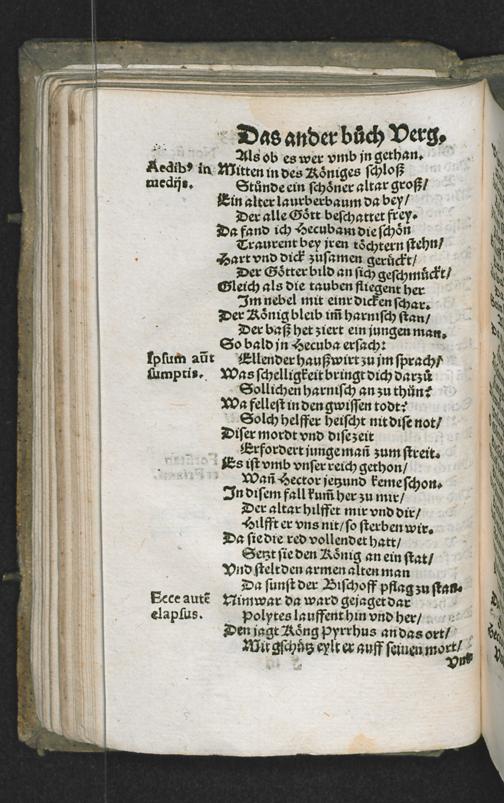 Das ander bůch Verg.
Als ob es wer vmb jn gethan.
Aedibꝰ in
medijs.
Mitten in des Königes schloß
Stůnde ein schöner altar groß/
Ein alter laurberbaum da bey/
Der alle Gött beschattet frey.
Da fand ich Hecubam die schön
Traurent bey jren töchtern stehn/
Hart vnd dick zusamen gerückt/
Der Götter bild an sich geschmückt/
Gleich als die tauben fliegent her
Im nebel mit einr dicken schar.
Der König bleib im̃ harnisch stan/
Der baß het ziert ein jungen man.
So bald jn Hecuba ersach:
Ipsum aūt
sumptis.
Ellender haußwirt zu jm sprach/
Was schelligkeit bringt dich darzů
Sollichen harnisch an zu thůn?
Wa fellest in den gwissen todt?
Solch helffer heischt nit dise not/
Diser mordt vnd dise zeit
Erfordert junge man̄ zum streit.
Es ist vmb vnser reich gethon/
Wañ Hector jetzund keme schon.
In disem fall kum̃ her zu mir/
Der altar hilffet mir vnd dir/
Hilfft er vns nit/ so sterben wir.
Da sie die red vollendet hatt/
Setzt sie den König an ein stat/
Vnd stelt den armen alten man
Da sunst der Bischoff pflag zu stan.
Ecce autē
elapsus.
Nim war da ward gejaget dar
Polytes lauffent hin vnd her/
Den jagt Köng Pyrrhus an das ort/
Mit gschütz eylt er auff seinen mort/
Vnd